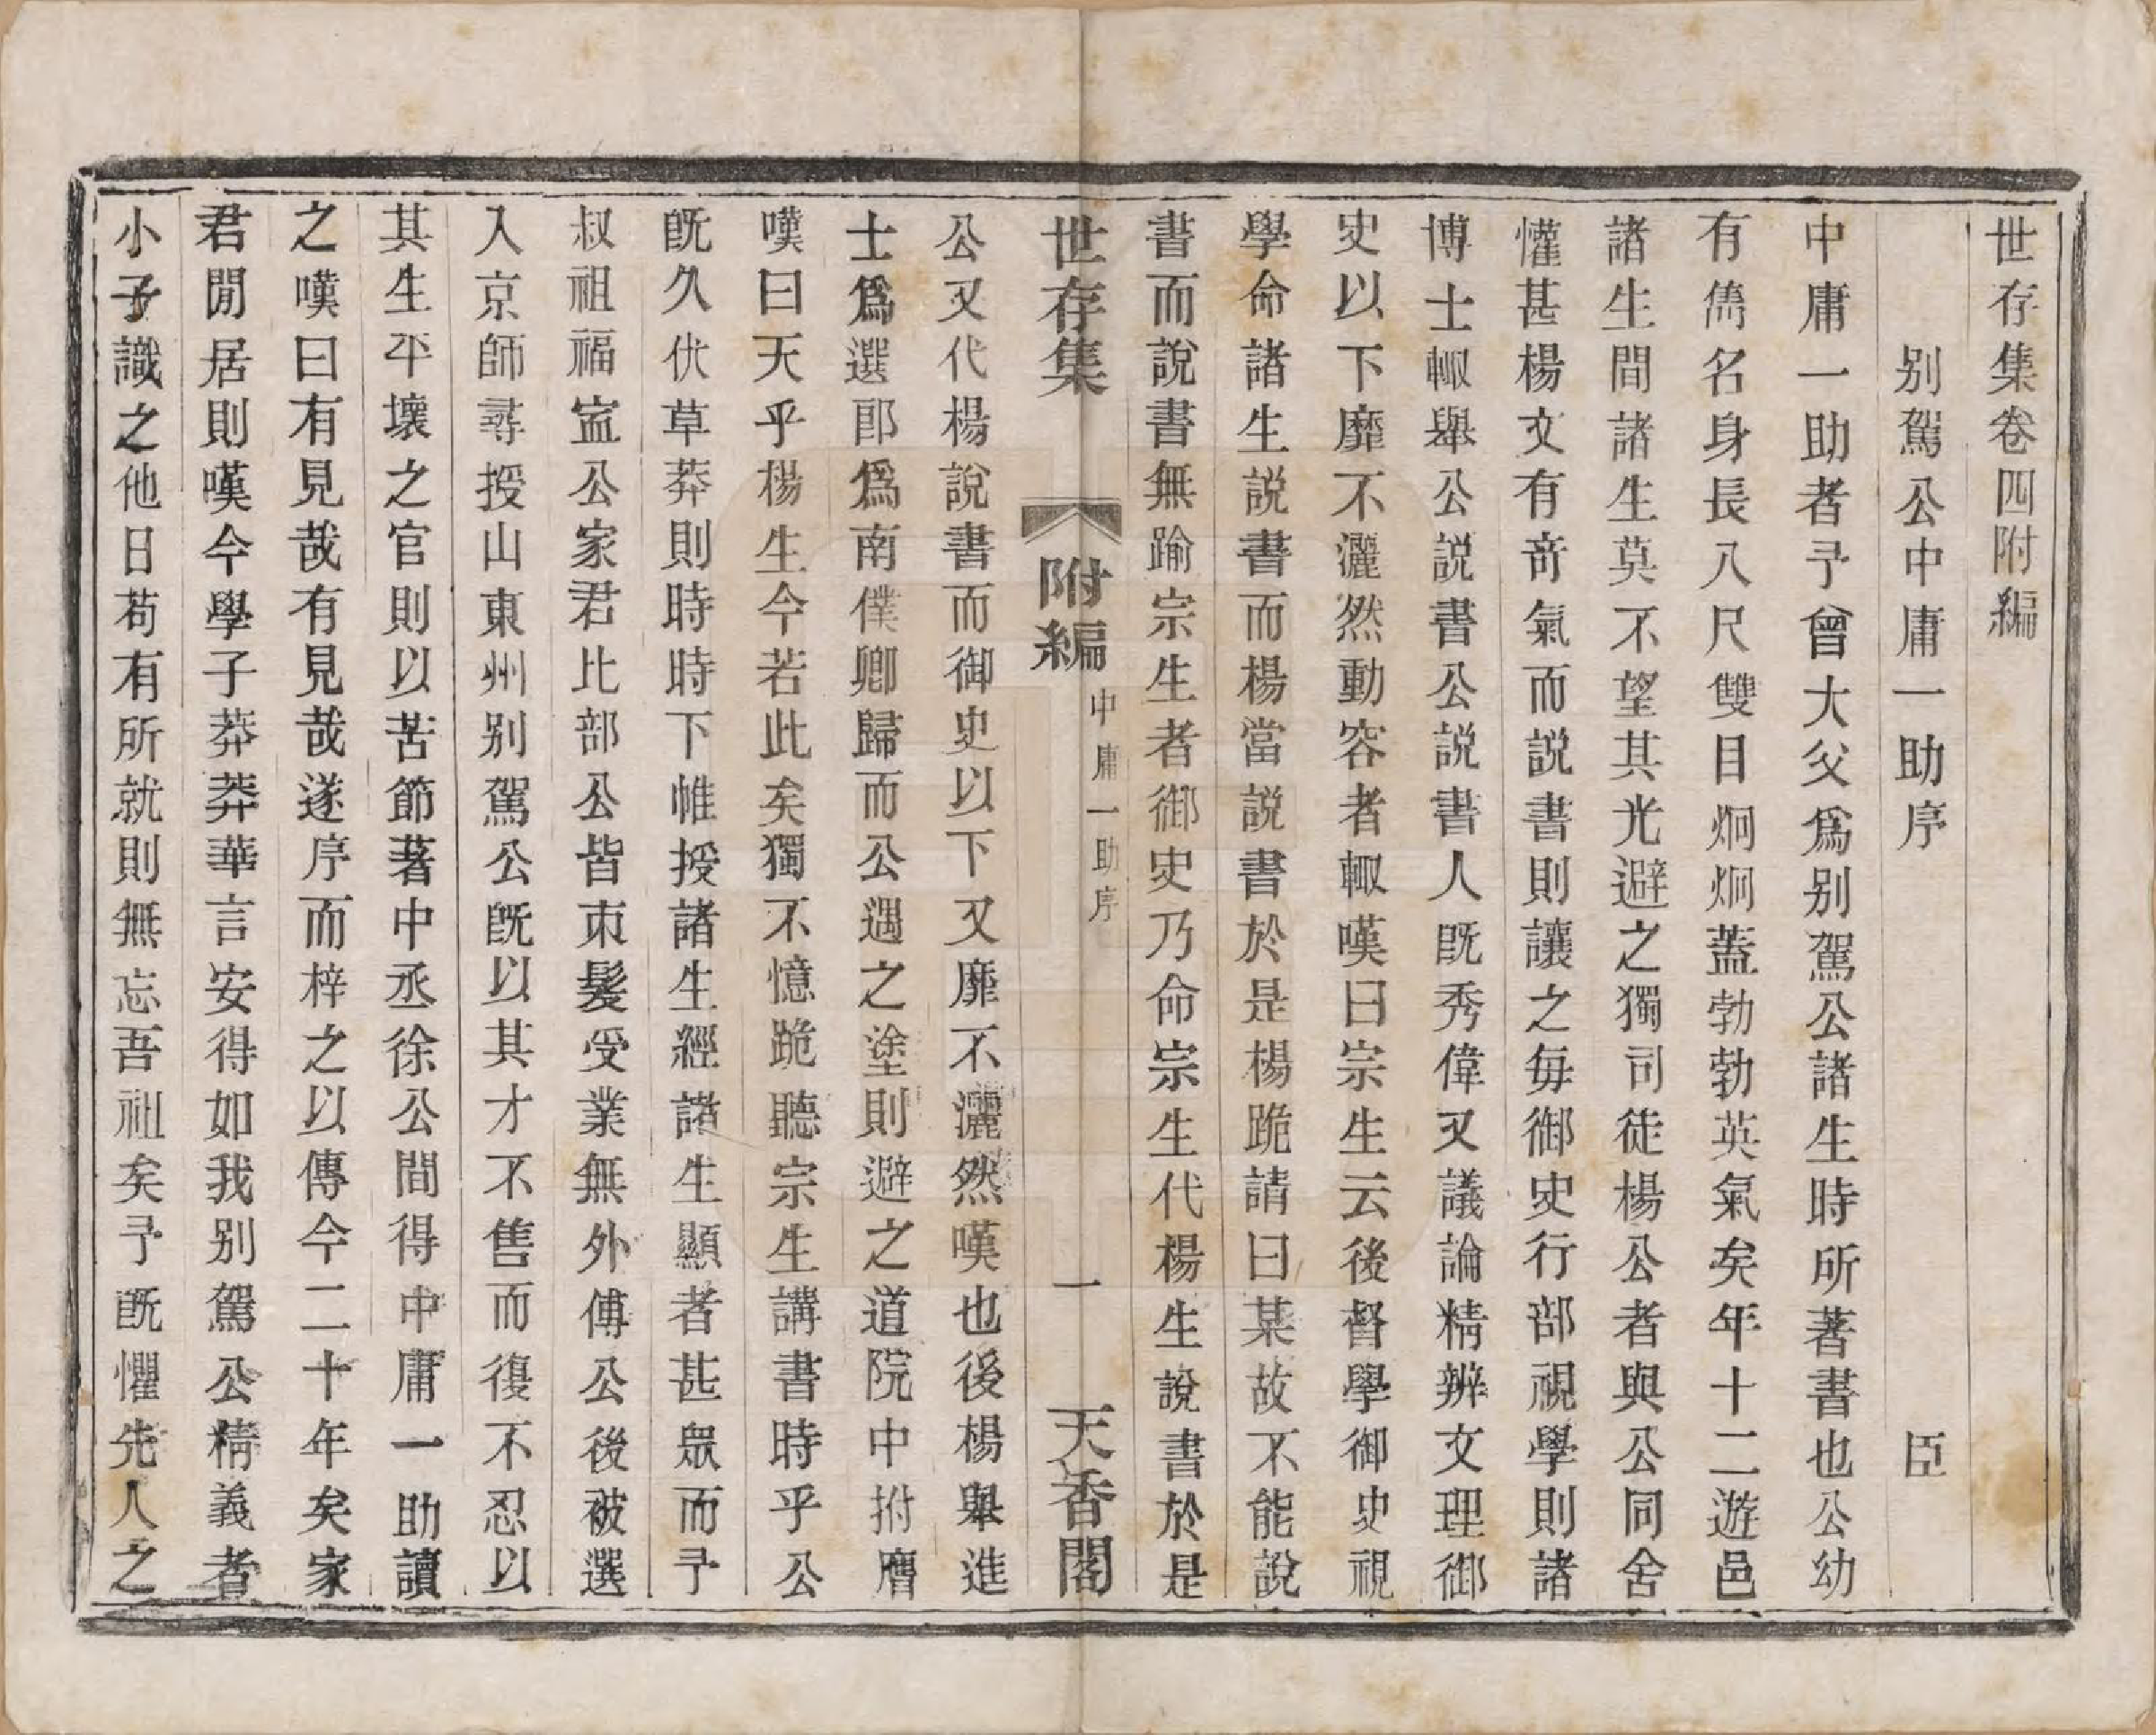 世存集卷四附編
别駕公中庸一助序 臣
中庸一助者予曾大父爲别駕公諸生時所著書也公幼
有儁名身長八尺雙目炯炯蓋勃勃英氣矣年十二遊邑
諸生間諸生莫不望其光避之獨司徒楊公者與公同舍
懽甚楊文有奇氣而説書則讓之每御史行部視學則諸
博士輙舉公説書公説書人既秀偉又議論精辨文理御
史以下靡不灑然動容者輙嘆曰宗生云後督學御史視
學命諸生説書而楊當説書於是楊跪請曰某故不能說
書而説書無踰宗生者御史乃命宗生代楊生說書於是
世存集 附編 中庸一助序 一 天香閣
公又代楊說書而御史以下又靡不灑然嘆也後楊舉進
士爲選郎爲南僕卿歸而公遇之塗則避之道院中拊膺
嘆曰天乎楊生今若此矣獨不憶跪聽宗生講書時乎公
既久伏草莽則時時下帷授諸生經諸生顯者甚眾而予
叔祖福寍公家君比部公皆束髮受業無外傅公後被選
入京師尋授山東州别駕公既以其才不售而復不忍以
其生平壞之官則以苦節著中丞徐公間得中庸一助讀
之嘆曰有見哉有見哉遂序而梓之以傳今二十年矣家
君閒居則嘆今學子莽莽華言安得如我别駕公精義者
小子識之他日苟有所就則無忘吾祖矣予既懼先人之